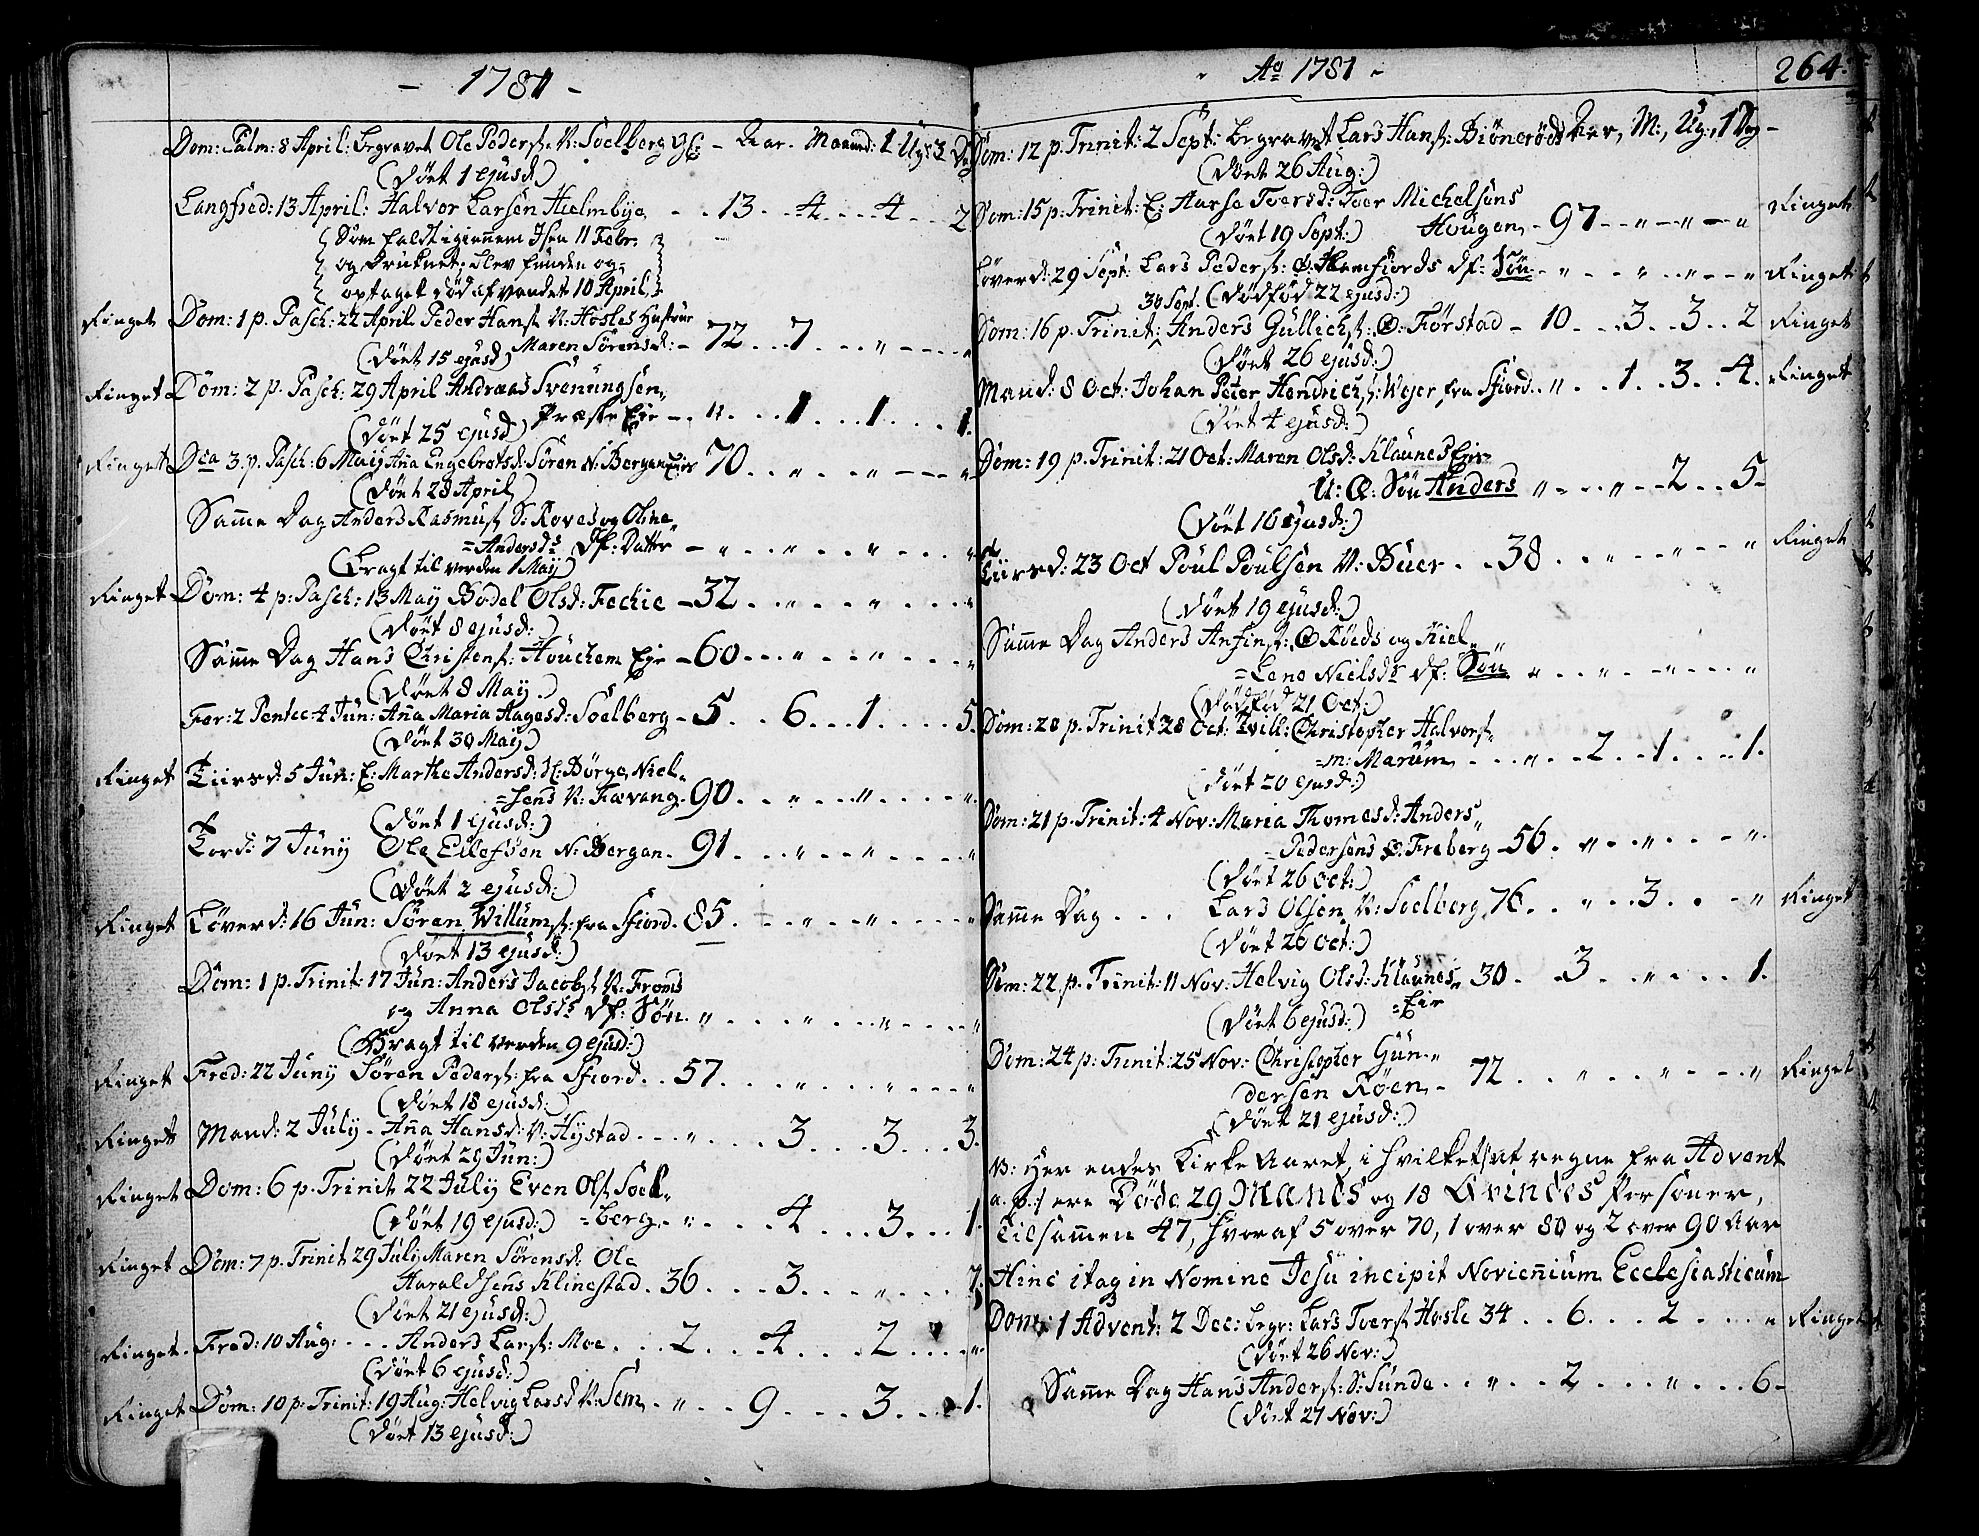 - 1781 -
Dom: Palm: 8 April: begravet Ole Peders: N: Soelberg - Aar - Maaned: 1 Ug: 3 D
(Döet 1 ejusd:)
Langfred: 13 April: Halvor Larsen Hielmbye - 13 - 4 - 4 - 2
Som faldt igiennem Isen 11 Febr:
og druknet, blev funden og
optaget död af vandet 10 April
Ringet Dom: 1 p. Pasch: 22 April Peder Hans: N: Hosles Hustrue
Maren Sörensd: - 72 - 7 - " - "
(Döet 15 ejusd:)
Ringet Dom: 2 p. Pasch: 29 April Andreas Svenungsen
Præste Eje - " - 1 - 1 - 1.
(Döet 25 ejusd:)
Ringet Dca 3. p. Pasch: 6 Maij Aña Engebretsd: Sören N: Bergan 70 - " - " - "
(Döet 28 April)
Samme Dag Anders Rasmus: S: Roves og Oline
=Andersds Df: Datter - " - " - " - "
(Bragt til verden 1 Maij)
Ringet Dom: 4 p: Pasch: 13 Maij Bodel Olsd: Fechie - 32 - " - " - "
(Döet 8 ejusd:)
Samme Dag Hans Christens: Houchem Eje - 60 - " - " - "
(Döet 8 Maij)
Fer: 2 Pentec 4 Jun: Aña Maria Aagesd: Soelberg - 5 - 6 - 1 - 5.
(Döet 30 Maij)
Ringet Tiirsd: 5 Jun: E: Marthe Andersd: H: Börge Niel-
=sens N: Fævang - 90 - " - " - "
(Döet 1 ejusd:)
Tord: 7 Juny Ole Ellefsen N: Bergan - 91 - " - " - "
(Döet 2 ejusd:)
Ringet Löverd: 16 Jun: Sören Willums: fra Sfiord - 85 - " - " - "
(Döet 13 ejusd:)
Dom: 1 p. Trinit: 17 Jun: Anders Jacobs: N: Froms
og Anna Olsds Df: Sön - " - " - " - "
(Bragt til verden 9 ejusd:)
Ringet Fred: 22 Juny Sören Peders: fra Sfiord - 57 - " - " - "
(Döet 18 ejusd:)
Ringet Mand: 2 July - Aña Hansd: N: Hystad - " - 3 - 3 - 3.
(Döet 29 Jun:)
Ringet Dom: 6 p. Trinit 22 July Even Ols: Soel-
=berg - " - 4 - 3 - 1.
(Döet 19 ejusd:)
Ringet Dom: 7 p. Trinit 29 July Maren Sörensd: Ole
Haraldsens Klinestad - 36 - 3 - " - 7.
(Döet 21 ejusd:)
Ringet Fred: 10 Aug: - Anders Lars: Moe - 2 - 4 - 2 - "
(Döet 6 ejusd:)
Ringet Dom: 10 p. Trinit: 19 Aug: Helvig Larsd N: Sem - " - 9 - 3 - 1.
(Döet 13 ejusd:)
- Ao 1781 - 264.
Dom: 12 p. Trinit: 2 Sept: begravet Lars Hans: Biöneröds Aar, M:, Ug:, 1 Dag -
(Döet 26 Aug:)
Dom: 15 p. Trinit: E: Aarse Toersd: Toer Michelsöns
Hougen - 97 - " - " - " Ringet
(Döet 19 Sept:)
Löverd: 29 Sept: Lars Peders: Ø: Hemfiords df: Sön - " - " - " - " Ringet
30 Sept. (dödföd 22 ejusd:)
Dom: 16 p. Trinit: Anders Gullichs: Ø: Förstad - 10 - 3 - 3 - 2 Ringet
(Döet 26 ejusd:)
Mand: 8 Oct: Johan Peter Hendrichs: Wejer fra Sfiord - " - 1 - 3 - 4. Ringet
(Döet 4 ejusd:)
Dom: 19 p. Trinit: 21 Oct: Maren Olsd: Klaunes Eje
U: Æ: Sön Anders " - " - 2 - 5 -
(Döet 16 ejusd:)
Tiirsd: 23 Oct Poul Poulsen N: Buer - 38 - " - " - " Ringet
(Döet 19 ejusd:)
Samme Dag Anders Anfins: Ø Röeds og Kiel-
=Lene Nielsds df: Sön " - " - " - "
(Dödföd 21 Oct:)
Dom: 20 p. Trinit 28 Oct: Tvill: Christopher Halvors:
=m: Marum - " - 2 - 1 - 1.
(döet 20 ejusd:)
Dom: 21 p. Trinit: 4 Nov: Maria Thomesd: Anders
=Pedersens Ø: Freberg - 56 - " - " - "
(Döet 26 Oct:)
Samme Dag - Lars Olsen N: Soelberg 76 - " - 3 - " Ringet
(Döet 26 Oct:)
Dom: 22 p. Trinit: 11 Nov: Helvig Olsd: Klaunes 30 - 3 - " - 1.
=Eje
(Döet 6 ejusd:)
Dom: 24 p: Trinit: 25 Nov: Christopher Gun-
dersen Röen - 72 - " - " - " Ringet
(Döet 21 ejusd:)
N: Her endes Kirke Aaret, i hvilket at regne fra Advent
a. p. ere Döde 29 Mands og 18 Qvindes Personer,
Tilsammen 47, hvoraf 5 over 70, 1 over 80 og 2 over 90 Aar
Hinc itaq in Nomine Jesu incipit Noviennium Ecclesiasticum
Dom: 1 Advent: 2 Dec: begr: Lars Toers: Hosle 34 - 6 - 2 - " Ringet
(Döet 26 Nov:)
Samme Dag Hans Anders: S: Sunde - " - 2 - " - 6 -
(Döet 27 Nov:)